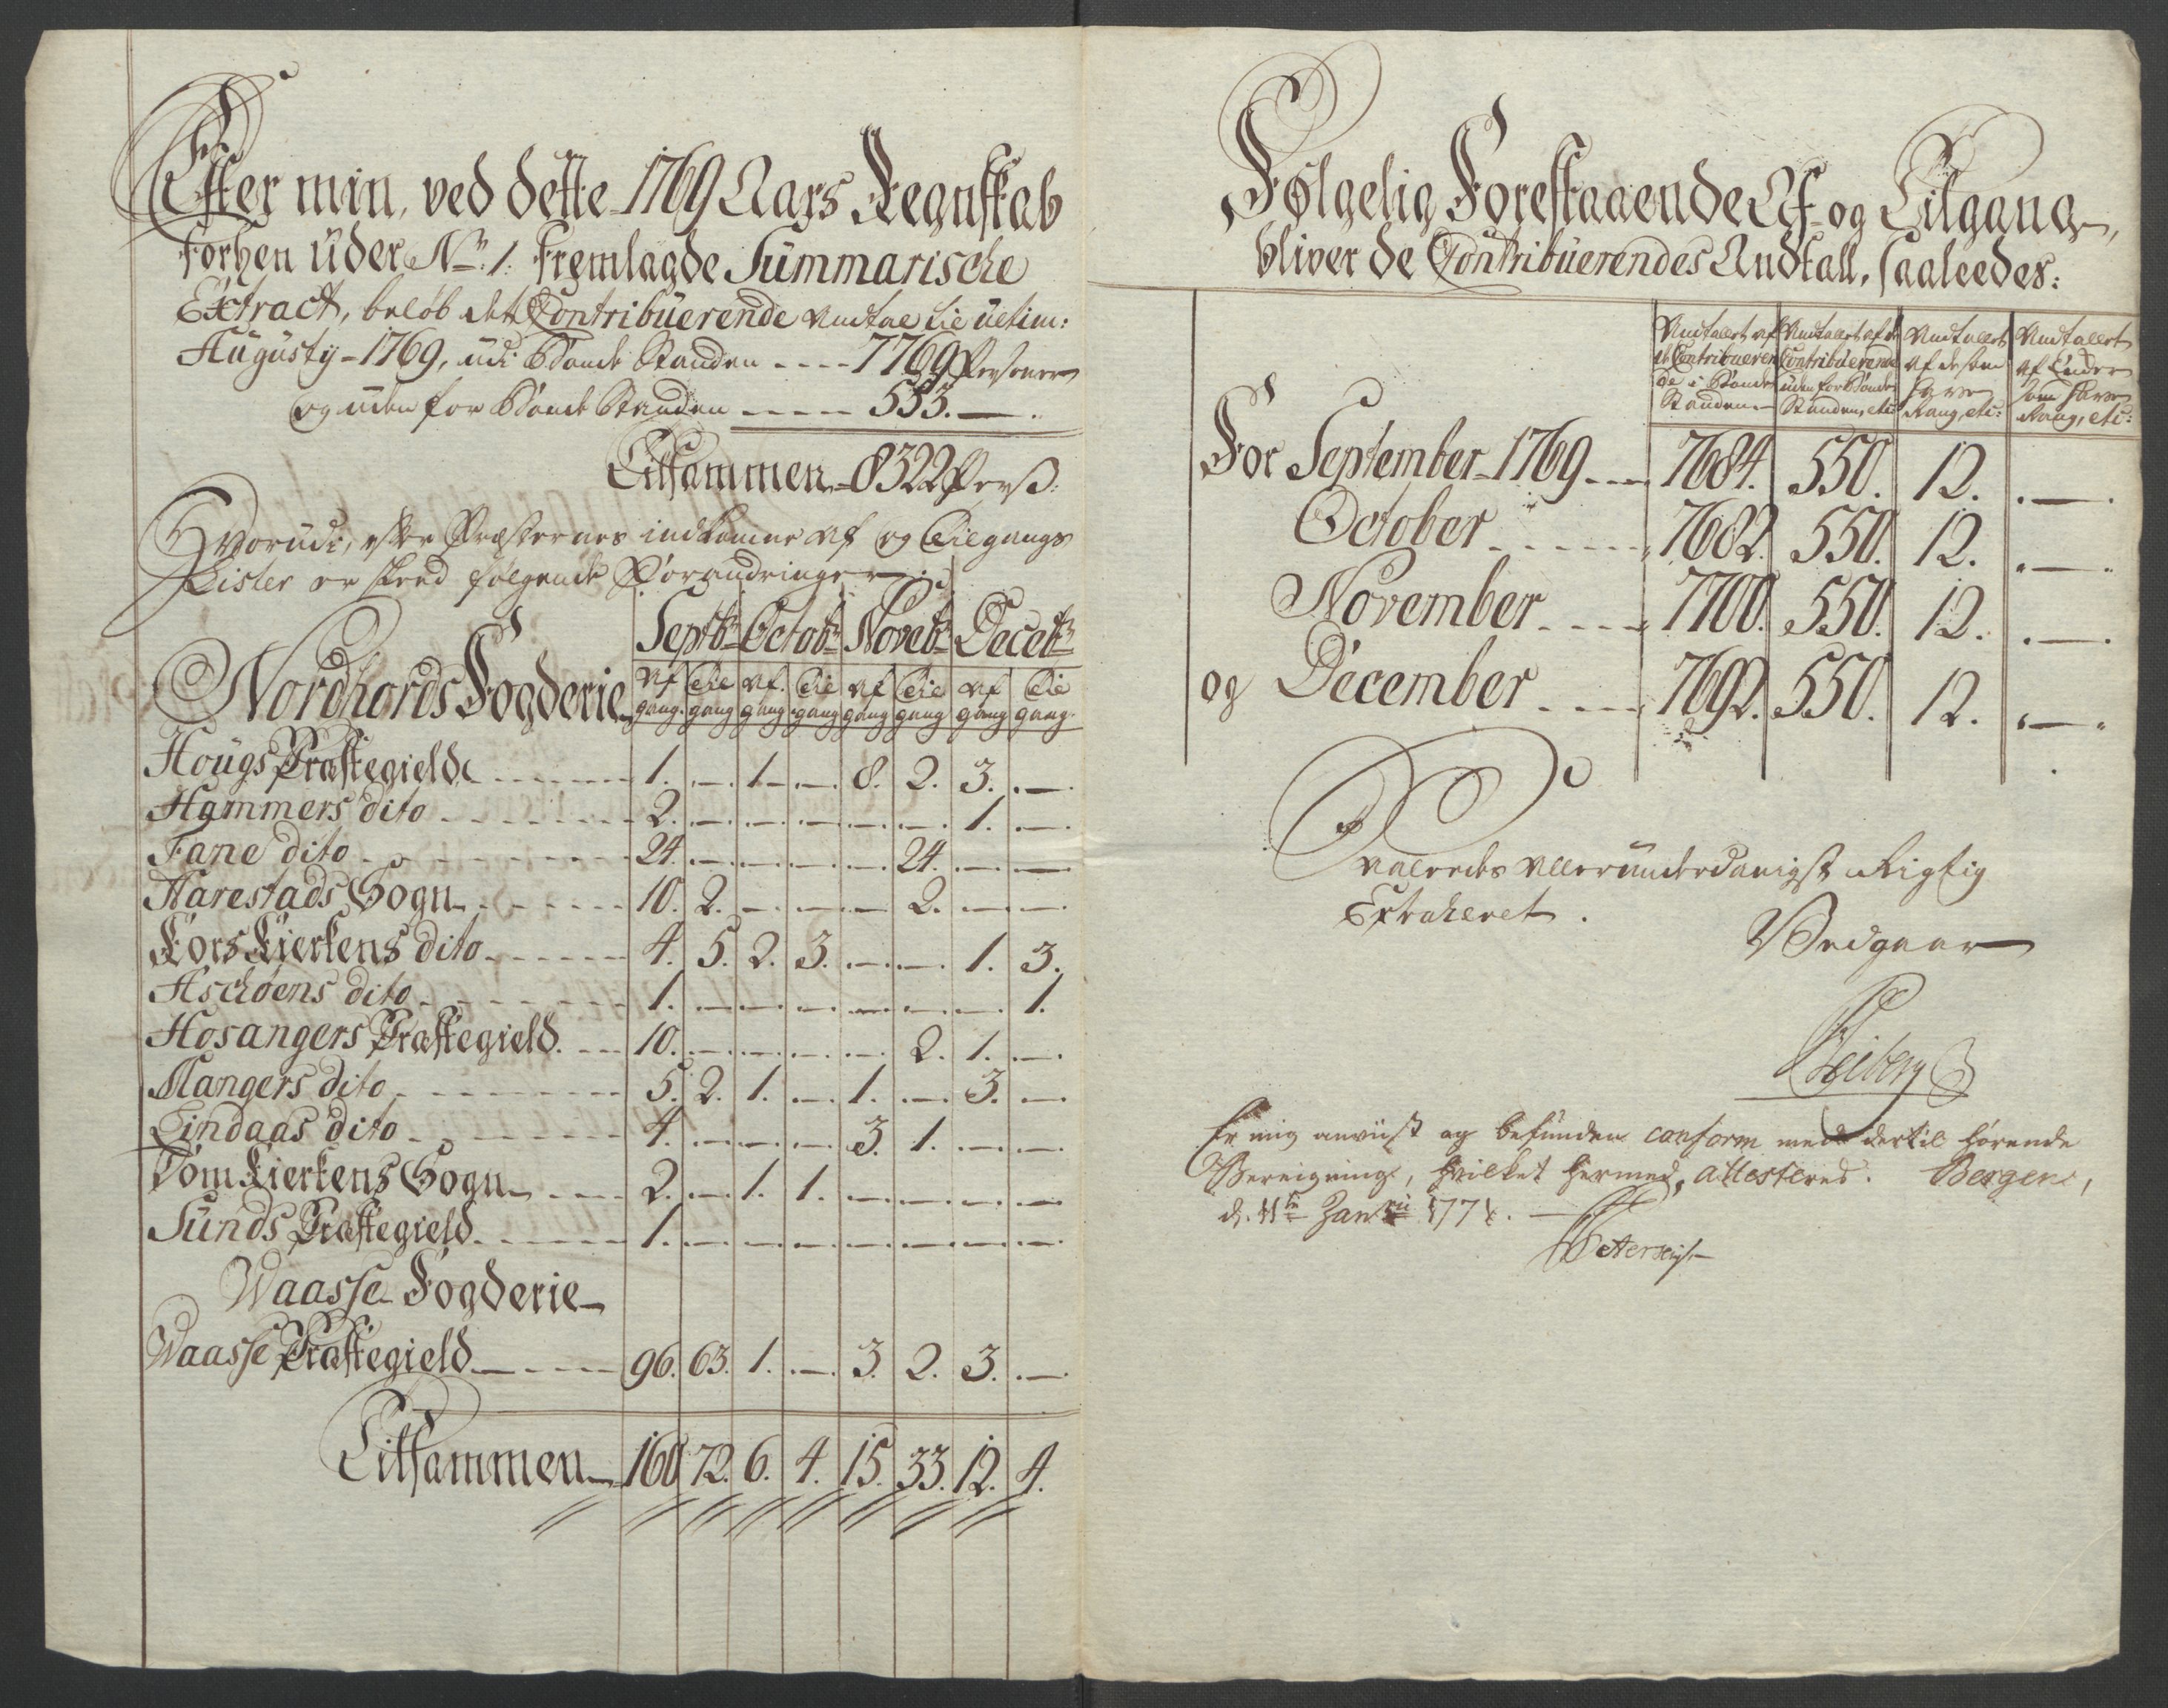 Efter min, ved dette 1769 Aars Regnskab
forhen under No. 1. fremlagde Summarische
Extract, beløb det Contribuerende Antal til ultim:
Augusty 1769, udi Bonde Standen ---- 7769 Personer
og uden for Bonde Standen ----- 553. —.
Tilsammen 8322 Persß:
Hvorudi, efter Præsternes indkomne Af og Tilgangs
Lister er skeed følgende Forandringer:
Septbr Octobr Novebr Decebr
Nordhords Fogderie Af gang. Til gang Af gang Til gang Af gang Til gang Af gang Til gang.
Hougs Præstegield 1. — 1. — 8. 2. 3. —
Hammers dito 2. — — — — — 1. —
Fane dito 24. — — — — 24. — —
Harestads Sogn 10. 2. — — — 2. — —
Kors Kierkens dito 4. 5. 2. 3. — — 1. 3.
Aschøens dito 1. — — — — — — 1.
Hosangers Præstegield 10. — — — — 2. 1. —
Mangers dito 5. 2. 1. — 1. — 3. —
Lindaas dito 4. — — — 3. 1. — —
Dom Kierkens Sogn 2. — 1. 1. — — — —
Sunds Præstegield 1. — — — — — — —
Waasse Fogderie
Waasse Præstegield 96. 63. 1. — 3. 2. 3. —
Tilsammen 160 72. 6. 4. 15. 33. 12. 4.
Følgelig Forestaaende Af og Tilgang,
bliver de Contribuerendes Andtall, saaleedes:
Andtallet af Andtallet af de Andtallet Andtallet
de Contribueren Contribuerende af de som af Enker
de i Bonde uden for Bonde have som have
Standen Standen, etc: Rang, etc: Rang, etc:
For September 1769 7684. 550. 12. —
October 7682. 550. 12. —
November 7700. 550. 12. —
og December 7692. 550. 12. —
Saaledes allerunderdanigst Rigtig
Extraheret.
Vedgaar
Heiberg
Er mig anviist og befunden conform med dertil hørende
Bereigning, hvilket hermed attesteres. Bergen,
d. 11te Janrii 1771.